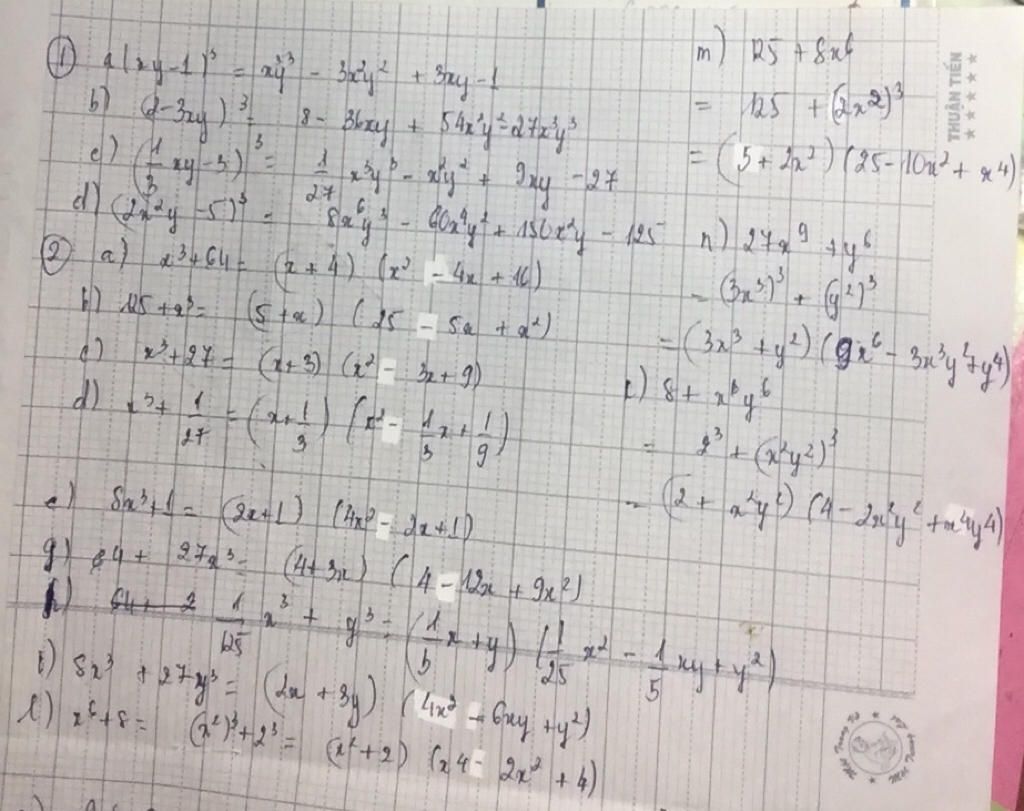 ① a (xy-1)³ = x³y³ - 3x²y² + 3xy - 1
b) (2-3xy)³ = 8 - 36xy + 54x²y² - 27x³y³
c) (1/3 xy - 3)³ = 1/27 x³y³ - x²y² + 9xy - 27
d) (2x²y - 5)³ = 8x⁶y³ - 60x⁴y² + 150x²y - 125
② a) x³ + 64 = (x + 4) (x² - 4x + 16)
b) 125 + x³ = (5 + x) (25 - 5x + x²)
c) x³ + 27 = (x + 3) (x² - 3x + 9)
d) x³ + 1/27 = (x + 1/3) (x² - 1/3 x + 1/9)
e) 8x³ + 1 = (2x + 1) (4x² - 2x + 1)
g) 64 + 27x³ = (4 + 3x) (4 - 12x + 9x²)
h) 1/125 x³ + y³ = (1/5 x + y) (1/25 x² - 1/5 xy + y²)
i) 8x³ + 27y³ = (2x + 3y) (4x² - 6xy + y²)
l) x⁶ + 8 = (x²)³ + 2³ = (x² + 2) (x4 - 2x² + 4)
m) 125 + 8x⁶
= 125 + (2x²)³
= (5 + 2x²) (25 - 10x² + x⁴)
n) 27x⁹ + y⁶
= (3x³)³ + (y²)³
= (3x³ + y²) (9x⁶ - 3x³y² + y⁴)
k) 8 + x⁶y⁶
= 2³ + (x²y²)³
= (2 + x²y²) (4 - 2x²y² + x⁴y4)
THUẬN TIẾN